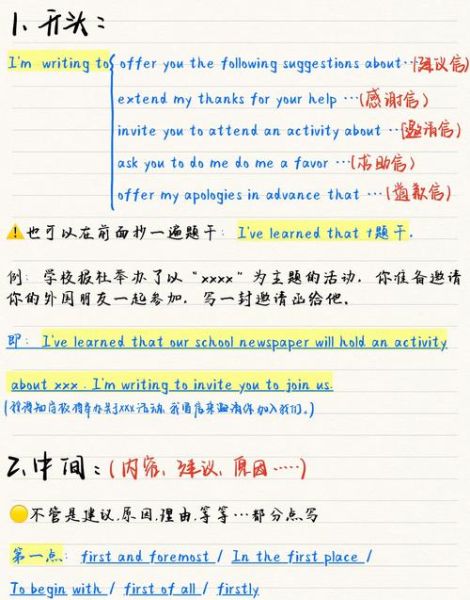 1. 开头：
I'm writing to offer you the following suggestions about…(建议信)
extend my thanks for your help …(感谢信)
invite you to attend an activity about …(邀请信)
ask you to do me do me a favor …(求助信)
offer my apologies in advance that …(道歉信)
⚠也可以在前面抄一遍题干： I've learned that +题干.
例：学校报社举办了以“xxxx”为主题的活动，你准备邀请
你的外国朋友一起参加，写一封邀请函给他.
即：I've learned that our school newspaper will hold an activity
about xxx . I'm writing to invite you to join us.
(我得知学校将举办关于xxx活动,我写信来邀请你加入我们。)
2、中间：(内容、建议、原因……)
不管是建议.原因.理由.等等…都分点写
第一点：first and foremost / In the first place /
To begin with / first of all / firstly